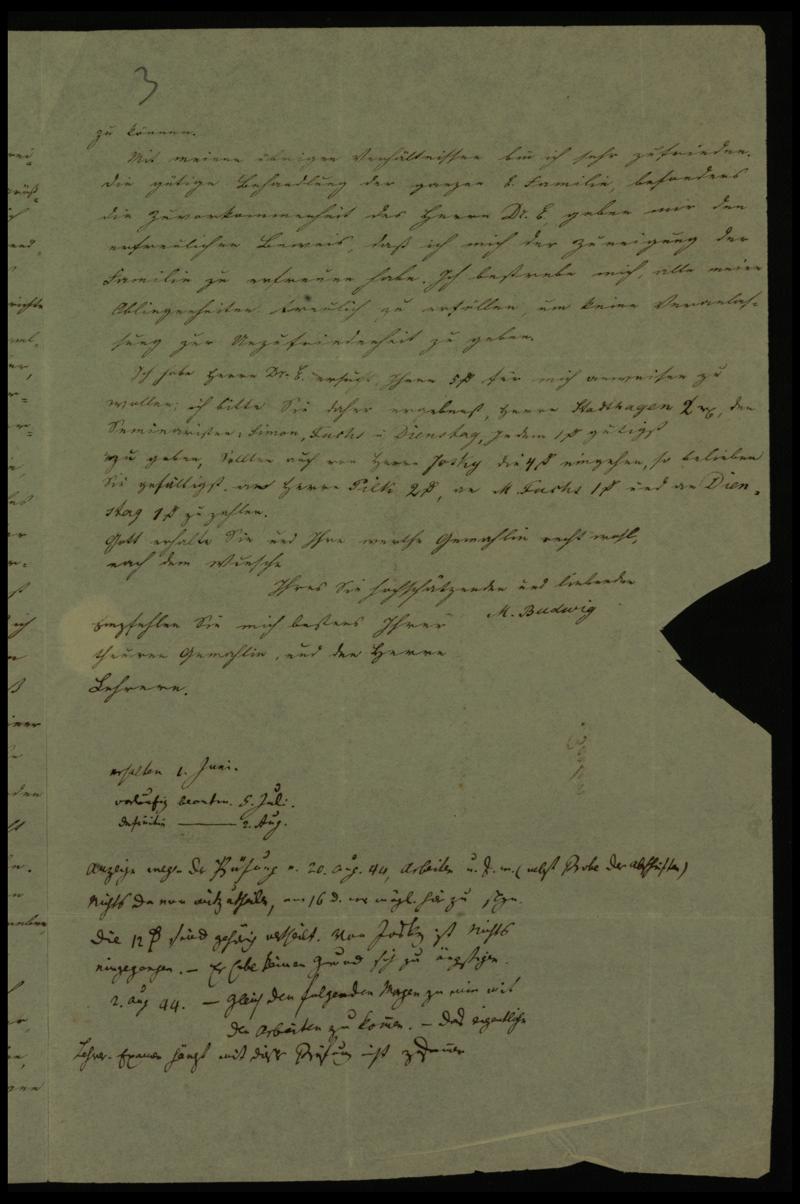 3
zu können.
Mit meinen übrigen Verhältnissen bin ich sehr zufrieden.
Die gütige Behandlung der ganzen E. Familie, besonders
die Zuvorkommenheit des Herrn Dr. E. geben mir den
erfreulichen Beweis, daß ich mich der Zuneigung der
Familie zu erfreuen habe. Ich bestrebe mich, alle meine
Obliegenheiten treulich zu erfüllen, um keine Veranlas-
sung zur Unzufriedenheit zu geben.
Ich habe Herrn Dr. E. ersucht, Ihnen 5 für mich anweisen zu
wollen; ich bitte Sie daher ergebenst, Herrn Stadthagen 2 den
Seminaristen: Simon, Fuchs u Dienstag, jedem 1 gütigst
zu geben, Sollten auch von Herrn Josky die 4 eingehen, so belieben
Sie gefälligst an Herrn Pilk 2, an M. Fuchs 1 und an Dien-
stag 1 zu zahlen.
Gott erhalte Sie und Ihre werthe Gemahlin recht wohl,
nach dem Wunsche
Ihres Sie hochschätzenden und liebenden
M. Budwig
Empfehlen Sie mich bestens Ihrer
theuren Gemahlin, und den Herren
Lehrern.
erhalten 1. Juni.
vorläufig beantw. 5. Juli.
definitiv 2. Aug.
Anzeige wegen der Prüfung v. 20. Aug. 44, Arbeiten u. (nebst Probe der Abschriften)
Nichts davon mitzutheilen, am 16 d. hier zu seyn.
Die 12 sind gehörig vertheilt. Von Josky ist Nichts
eingegangen. — Er habe keinen Grund sich zu ängstigen.
2. Aug 44. — Gleich den folgenden Morgen zu mir mit
den Arbeiten zu kommen. — Das eigentliche
Lehrer-Examen hängt mit dieser Prüfung nicht zusammen